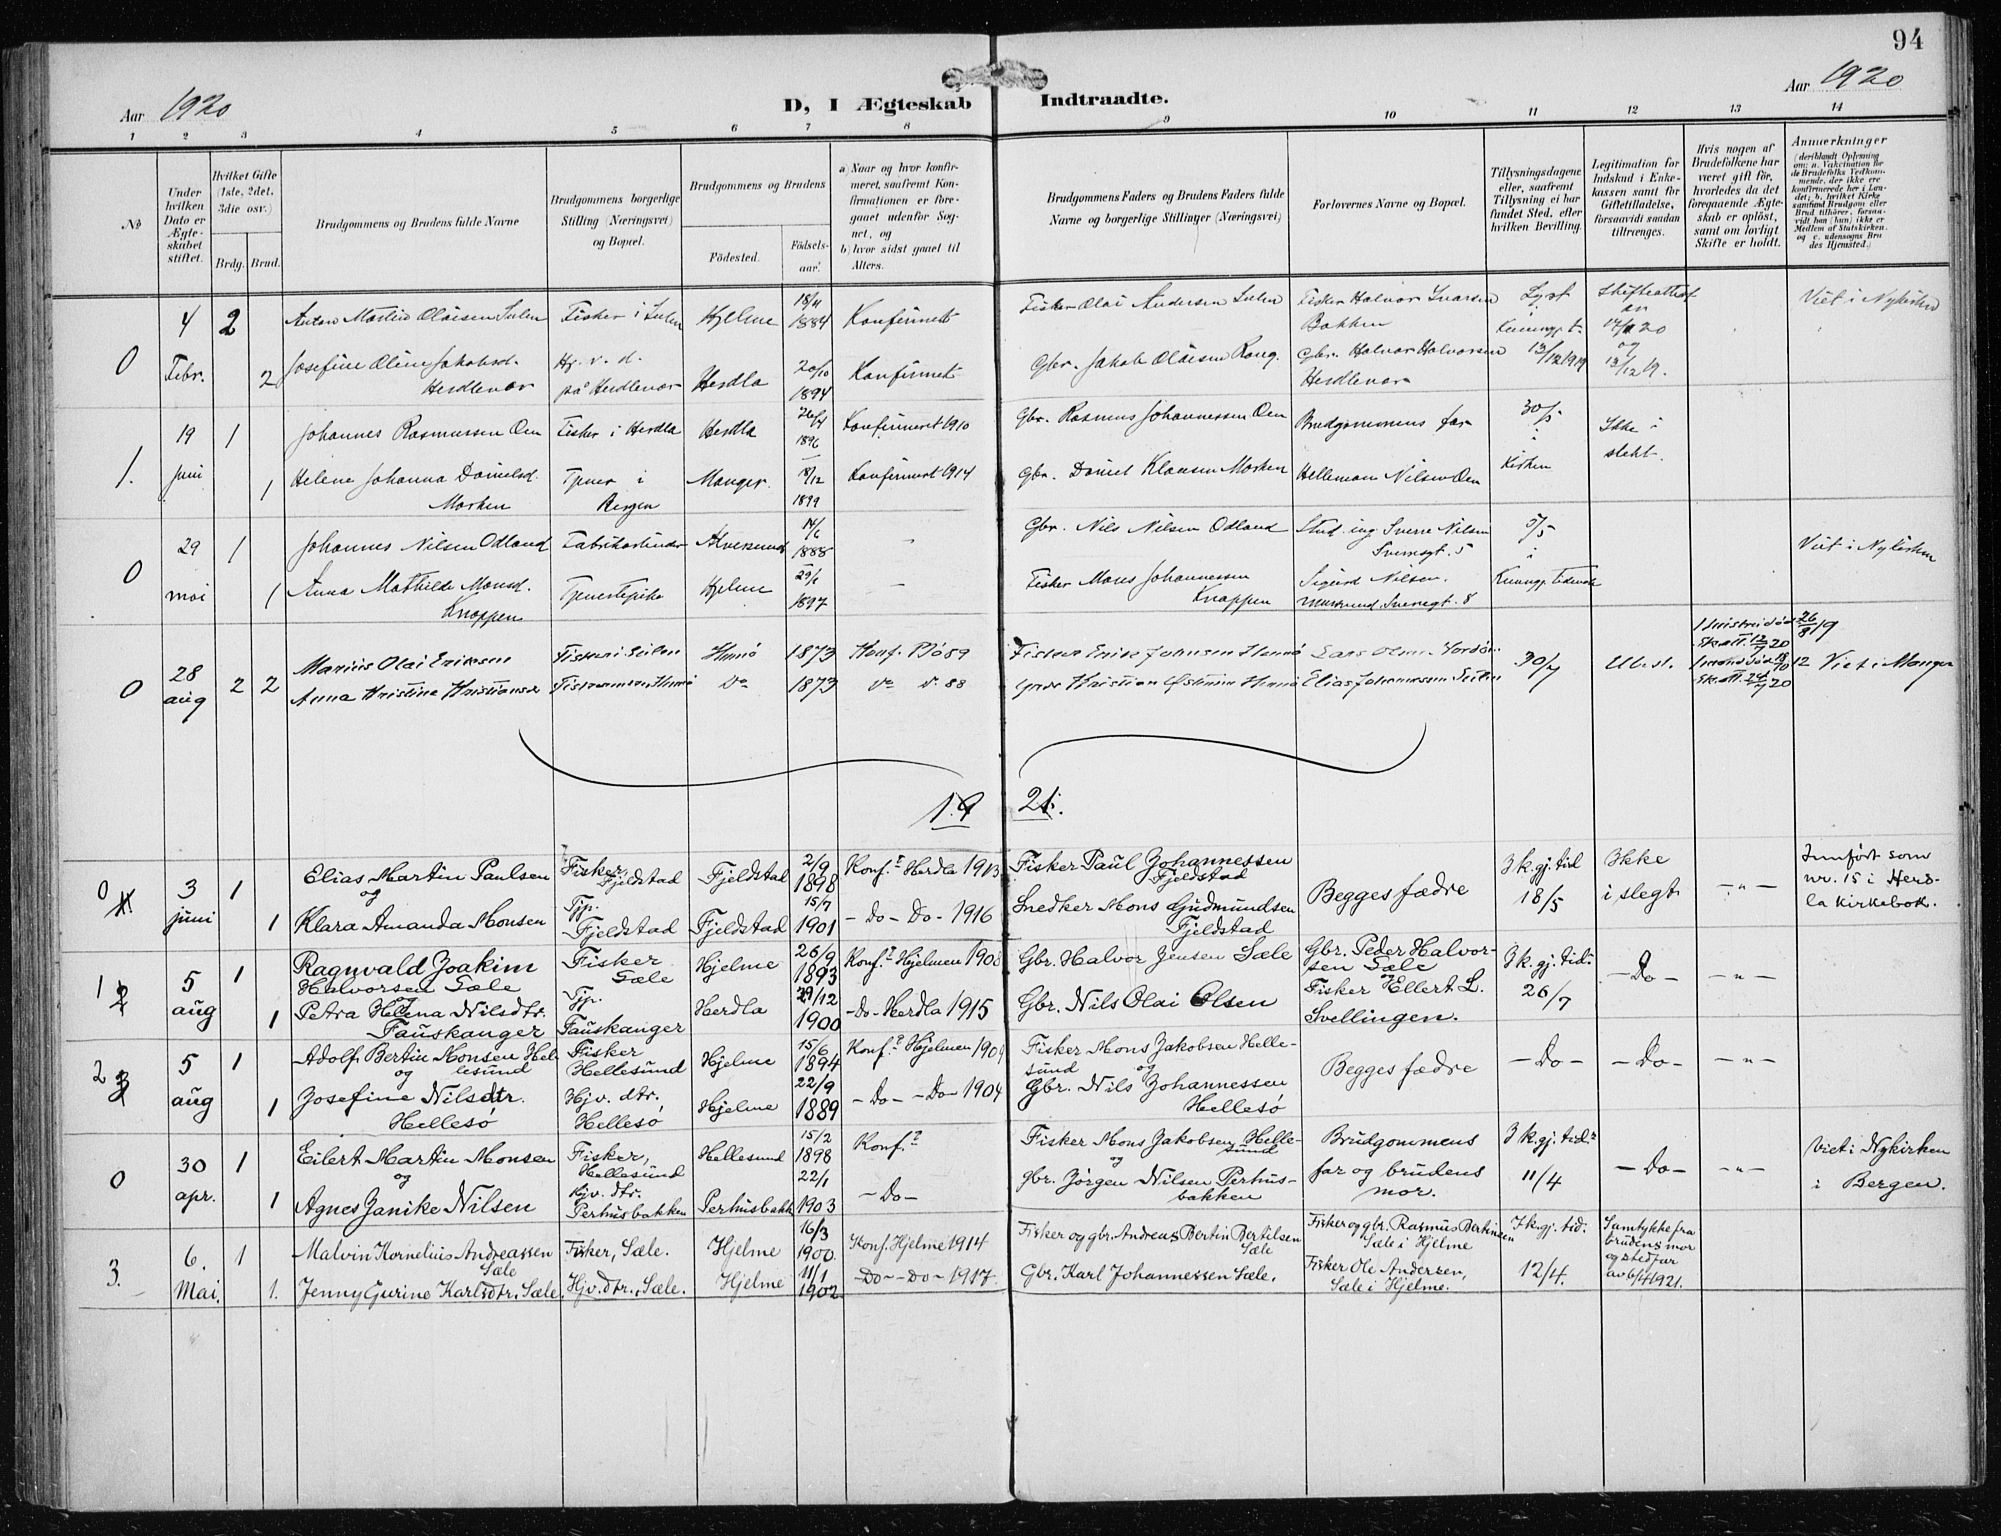 94
Aar 1920
D, I Ægteskab Indtraadte.
Aar 1920
1 2 3 4 5 6 7 8 9 10 11 12 13 14
No
Under hvilken Dato er Ægteskabet stiftet.
Hvilket Gifte (1ste, 2det, 3die osv.)
Brdg. Brud.
Brudgommens og Brudens fulde Navne
Brudgommens borgerlige Stilling (Næringsvei) og Bopæl.
Brudgommens og Brudens
Födested.
Födselsaar.
a) Naar og hvor konfirmeret, saafremt Konfirmationen er foregaaet udenfor Sognet, og
b) hvor sidst gaaet til Alters.
Brudgommens Faders og Brudens Faders fulde Navne og borgerlige Stillinger (Næringsvei)
Forlovernes Navne og Bopæl.
Tillysningsdagene eller, saafremt Tillysning ei har fundet Sted, efter hvilken Bevilling.
Legitimation for Indskud i Enkekassen samt for Giftetilladelse, forsaavidt saadan tiltrænges.
Hvis nogen af Brudefolkene har været gift før, hvorledes da det foregaaende Ægteskab er opløst, samt om lovligt Skifte er holdt.
Anmerkninger (deriblandt Oplysning om: a. Vakcination for de Brudefolks Vedkommende, der ikke ere konfirmerede her i Landet; b. hvilket Kirkesamfund Brudgom eller Brud tilhører, forsaavidt han (hun) ikke er Medlem af Statskirken, og c. udensogns Brudes Hjemsted.)
0 4 Febr. 2 Anton Martin Olaisen Sulen Fisker i Sulen Hjelme 18/11 1884 Konfirmet Fisker Olai Andersen Sulen Fisker Halvor Ivarsen Bakken Lyst i 13/12 1919 Skifteattest av 20 og 13/12 19. Viet i Nykirken
2 Josefine Oline Jakobsd. Herdlevær Hj. v. d. på Herdlevær Herdla 20/10 1894 Konfirmet Gbr. Jakob Olaisen Rong. Gbr. Halvor Halvorsen Herdlevær
1. 19 juni 1 Johannes Rasmussen Oen Fisker i Herdla Herdla 26/4 1896 Konfirmeret 1910 Gbr. Rasmus Johannessen Oen Brudgommens far 30/5 i Kirken Ikke i slekt.
1 Helene Johanna Danielsd. Marken Tjener i Bergen Manger. 8/12 1899 Konfirmert 1914 Gbr. Daniel Klausen Marken Helleman Nilsen Oen
0 29 mai 1 Johannes Nilsen Odland Fabrikarbeider Alversund 14/6 1888 " Gbr. Nils Nilsen Odland Stud. ing Sverre Nilsen Sverresgt. 5 5/5 i Viet i Nykirken
1 Anna Mathilde Monsd. Knappen Tjenestepike Hjelme 29/1 1897 — Fisker Mons Johannessen Knappen Sigurd Nilsen. Sverregt. 8
0 28 aug 2 2 Marius Olai Eriksen Fisker i Seilen Hernø 1873 Konf. 89 Fisker Erik Johnsen Hernø Lars 30/7 Ube sl. 26/8 19 Viet i Manger
Anna Kristine Kristiansd Do 1873 Do 88 Kristian Østensen Hernø Elias Johannessen Seilen
19 21.
0 3 juni 1 Elias Martin Paulsen Fisker, Fjeldstad Fjeldstad 2/9 1898 Konf. Herdla 1913 Fisker Paul Johannessen Fjeldstad Begges fædre 3 k. gj. tid 18/5 Ikke i slegt —"— Innført som nr. 15 i Herdla Kirkebok.
og
1 Klara Amanda Monsen Tjp. Fjeldstad Fjeldstad 15/7 1901 — Do — Do — 1916 Snedker Mons Gudmundsen Fjeldstad
1 2 5 aug 1 Ragnvald Joakim Halvorsen Sæle Fisker Sæle Hjelme 26/9 1893 Konf. Hjelmen 1908 Gbr. Halvor Jensen Sæle Gbr. Peder Halvorsen Sæle 3 k. gj. tid: 26/7 — Do — —"—
og
1 Petra Helena Nilsdtr. Fauskanger Tjp. Fauskanger Herdla 29/12 1900 — Do — Herdla 1915 Gbr. Nils Olai Olsen og Fisker Ellert L. Svellingen.
2 3 5 aug 1 Adolf Bertin Monsen Hellesund Fisker Hellesund Hjelme 15/6 1894 Konf. Hjelmen 1909 Fisker Mons Jakobsen Hellesund Begges fædre — Do — — Do — —"—
og
1 Josefine Nilsdtr. Hellesö Hjv. dtr. Hellesö Hjelme 22/9 1889 — Do — — Do — 1904 og Gbr. Nils Johannessen Hellesö
0 30 apr. 1 Eilert Martin Monsen Fisker, Hellesund Hellesund 15/2 1898 Konf. Fisker Mons Jakobsen Hellesund Brudgommens far og brudens mor. 3 k. gj. tid: 11/4 — Do — —"— Viet i Nykirken i Bergen.
og
1 Agnes Janike Nilsen Hjv. dtr. Perhusbakken Perhusbakk 22/1 1903 — Do — og gbr. Jørgen Nilsen Perhusbakken
3. 6. Mai. 1 Malvin Kornelius Andreassen Sæle Fisker, Sæle. Hjelme 16/3 1900 Konf. Hjelme 1914 Fisker og gbr. Andreas Bertin Bertilsen Sæle Fisker og gbr. Rasmus Bertinsen Sæle i Hjelme 3 k. gj. tid. 12/4. Samtykke fra brudens mor og stedfar av 6/4 1921.
1. Jenny Gurine Karlsdtr. Sæle. Hjv. dtr., Sæle. Hjelme 11/1 1902 — Do — — Do — 1917. Gbr. Karl Johannessen Sæle. Fisker Ole Andersen, Sæle i Hjelme.